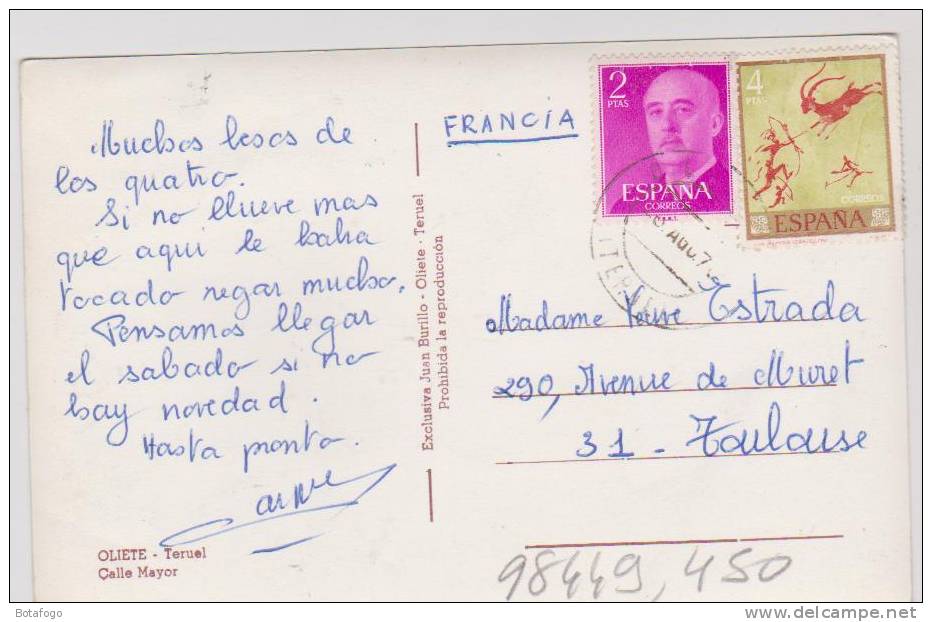 Muchos besos de
los quatro.
Si no llueve mas
que aqui le baha
tocado regar mucho.
Pensamos llegar
el sabado si no
hay novedad.
Hasta pronto.
OLIETE - Teruel
Calle Mayor
Exclusiva Juan Burillo - Oliete - Teruel
Prohibida la reproducción
FRANCÍA
2
PTAS
ESPAÑA
CORREOS
4
PTAS
CORREOS
ESPAÑA
AGO.7
Madame Veuve Estrada
290, Avenue de Muret
31 - Toulouse
98449, 450
Botafogo
www.delcampe.net